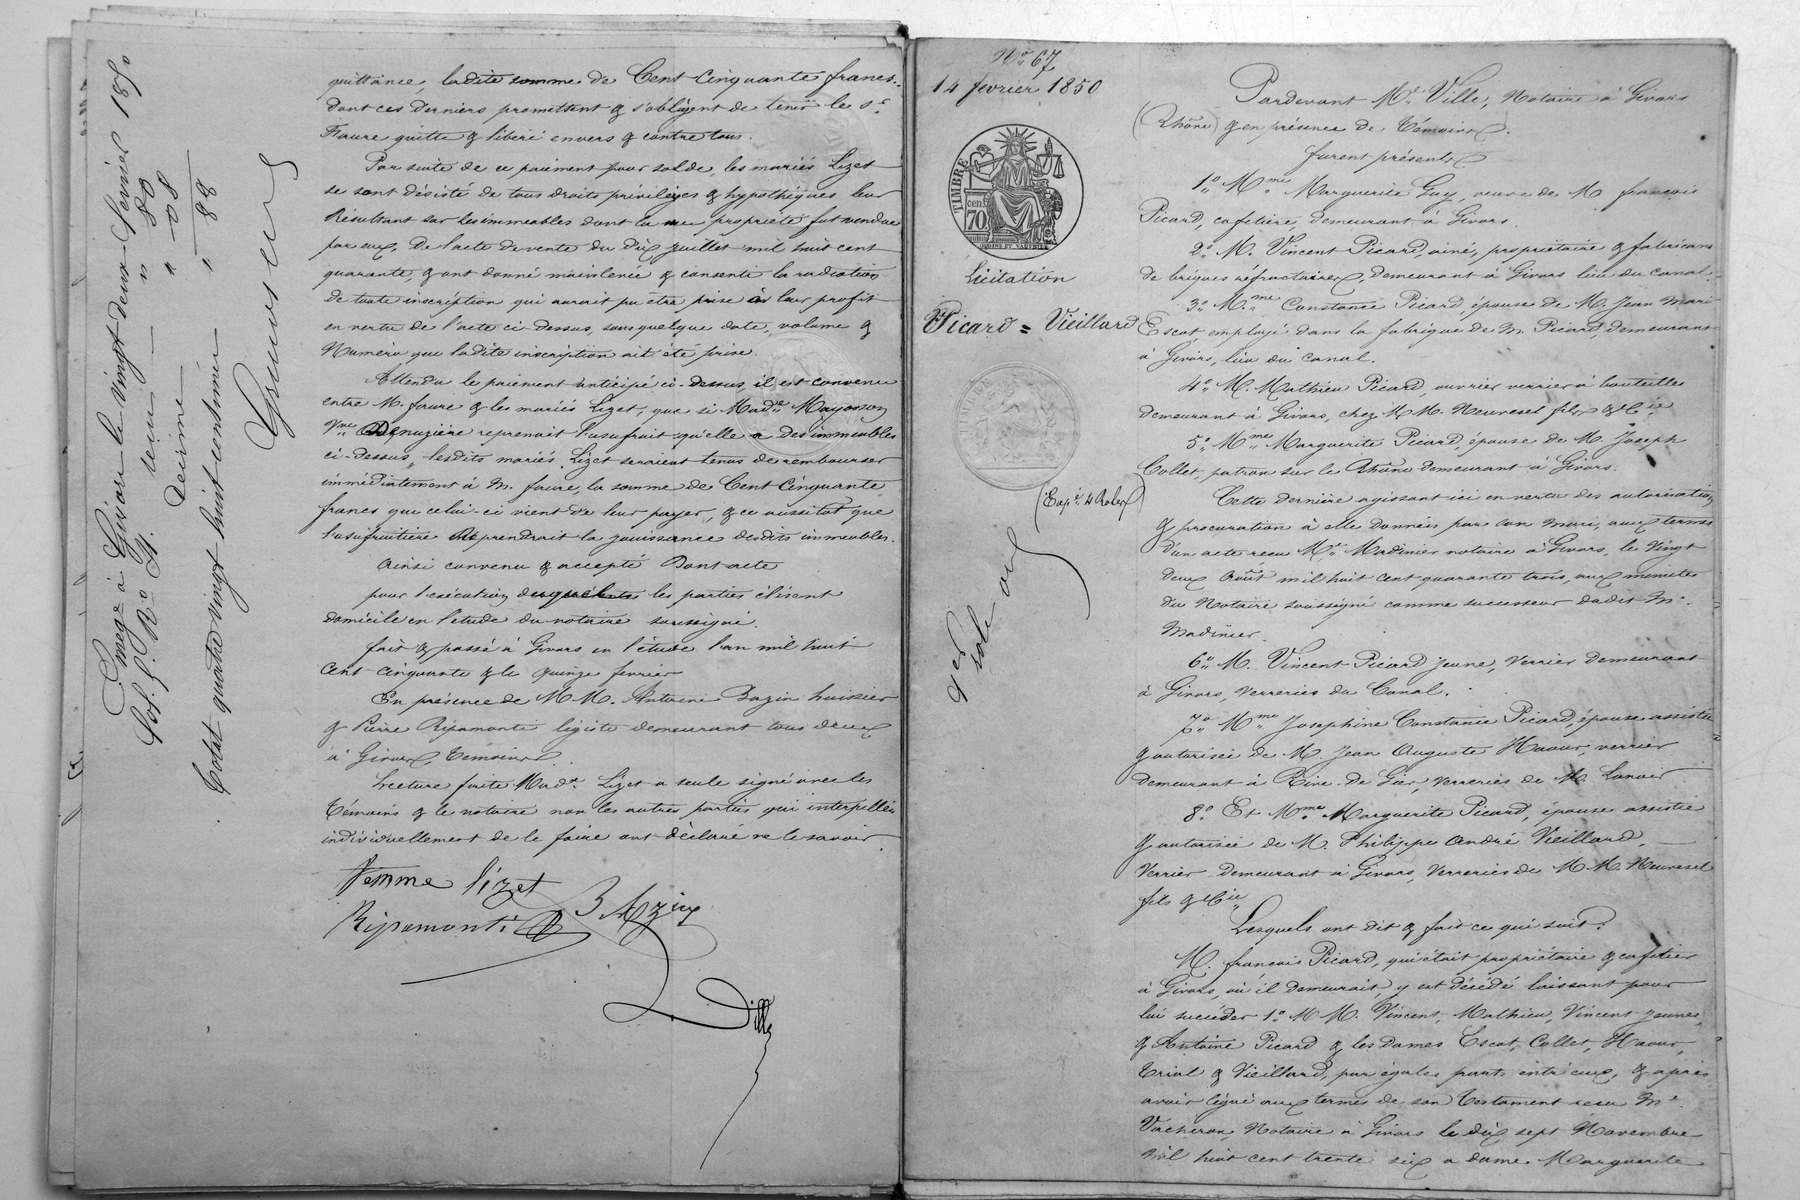 quittance, ladite somme de Cent cinquante francs.
dont ces derniers promettent & s'obligent de tenir le sr
Faure quitte & libéré envers & contre tous.
Par suite de ce paiement pour solde, les mariés Lizet
se sont désisté de tous droits privilèges & hypothèques leur
résultant sur les immeubles dont la nue propriété fut vendue
par eux, de l'acte de vente du dix juillet mil huit cent
quarante, & ont donné mainlevée & consenti la radiation
de toute inscription qui aurait pu être prise à leur profit
en vertu de l'acte ci-dessus, sous quelque date, volume &
Numéro que ladite inscription ait été prise.
Attendu le paiement anticipé ci-dessus, il est convenu
entre M. faure & les mariés Lizet, que si Made
Vve reprenait l'usufruit qu'elle a des immeubles
ci-dessus, lesdits mariés Lizet seraient tenus de rembourser
immédiatement à M. faure, la somme de Cent cinquante
francs que celui-ci vient de leur payer, & ce aussitôt que
l'usufruitière reprendrait la jouissance desdits immeubles.
Ainsi convenu & accepté Dont acte
pour l'exécution les parties élisent
domicile en l'étude du notaire soussigné.
fait & passé à Givors en l'étude l'an mil huit
cent cinquante & le quinze fevrier
En présence de M.M. Antoine Bazin huissier
& Pierre Ripamonti légiste demeurant tous deux
à Givors Témoins
Lecture faite Made Lizet a seule signé avec les
témoins & le notaire non les autres parties qui interpellés
individuellement de le faire ont déclaré ne le savoir.
femme lizet
BAzin
Ripamonti
Ville
Enregé à Givors le Vingt deux fevrier 1850
fol. Ro
" 80
Décime " 08
" 88
total quatre vingt huit centimes
No 67
14 fevrier 1850
TIMBRE
70 cent.
Licitation
Picard = Vieillard
(Expé 4 Roles)
Pardevant Me Ville, Notaire à Givors
(Rhône) & en présence de témoins.
furent présents
1o Mme Marguerite Guy, veuve de M. françois
Picard, cafetière, demeurant à Givors
2o M. Vincent Picard, ainé, propriétaire & fabricant
de briques réfractaires, demeurant à Givors lieu du canal.
3o Mme Constance Picard, épouse de M. Jean Marie
Escot, employé dans la fabrique de M. Picard, demeurant
à Givors, lieu du canal.
4o M. Mathieu Picard, ouvrier verrier à bouteilles
demeurant à Givors, chez M.M. Neuvesel fils & Cie
5o Mme Marguerite Picard, épouse de M. Joseph
Collet, patron sur le Rhône demeurant à Givors.
Cette dernière agissant ici en vertu des autorisation
& procuration à elle données par son mari, aux termes
d'un acte reçu Me Madinier notaire à Givors, le vingt
deux Août mil huit cent quarante trois, aux minutes
du Notaire soussigné comme successeur dudit Me
Madinier.
6o M. Vincent Picard jeune, verrier demeurant
à Givors, verreries du Canal.
7o Mme Joséphine Constance Picard, épouse assistée
& autorisée de M. Jean Auguste Havour, verrier
demeurant à Rive-de-Gier, verreries de M. Lanoir
8o Et Mme Marguerite Picard, épouse assistée
& autorisée de M. Philippe André Vieillard,
verrier demeurant à Givors, verreries de M.M. Neuvesel
fils & Cie
Lesquels ont dit & fait ce qui suit.
M. françois Picard, qui était propriétaire & cafetier
à Givors, où il demeurait, y est décédé laissant pour
lui succéder 1o M.M. Vincent, Mathieu, Vincent jeune,
& Antoine Picard & les Dames Escot, Collet, Havour,
Trial & Vieillard, par égales parts entr'eux, & après
avoir légué aux termes de son testament reçu Me
Vacheron, Notaire à Givors le dix sept Novembre
Mil huit cent trente six a dame Marguerite